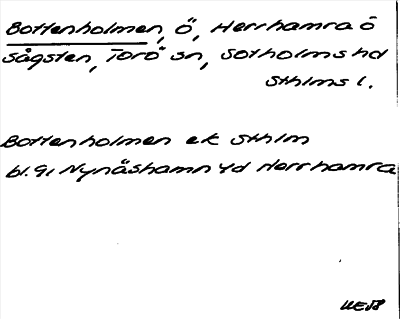 Bottenholmen, ö, Herrhamra ö
Sågsten, Torö sn, Sotholms hd
Sthlms l.
Bottenholmen ek Sthlm
bl. 91 Nynäshamn 4d Herrhamra